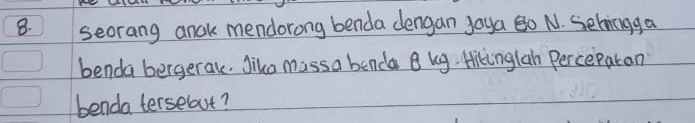 8. seorang anak mendorong benda dengan gaya 80 N. Sehingga
benda bergerak. Jika massa benda 8 kg. Hitunglah Percepatan
benda tersebut?